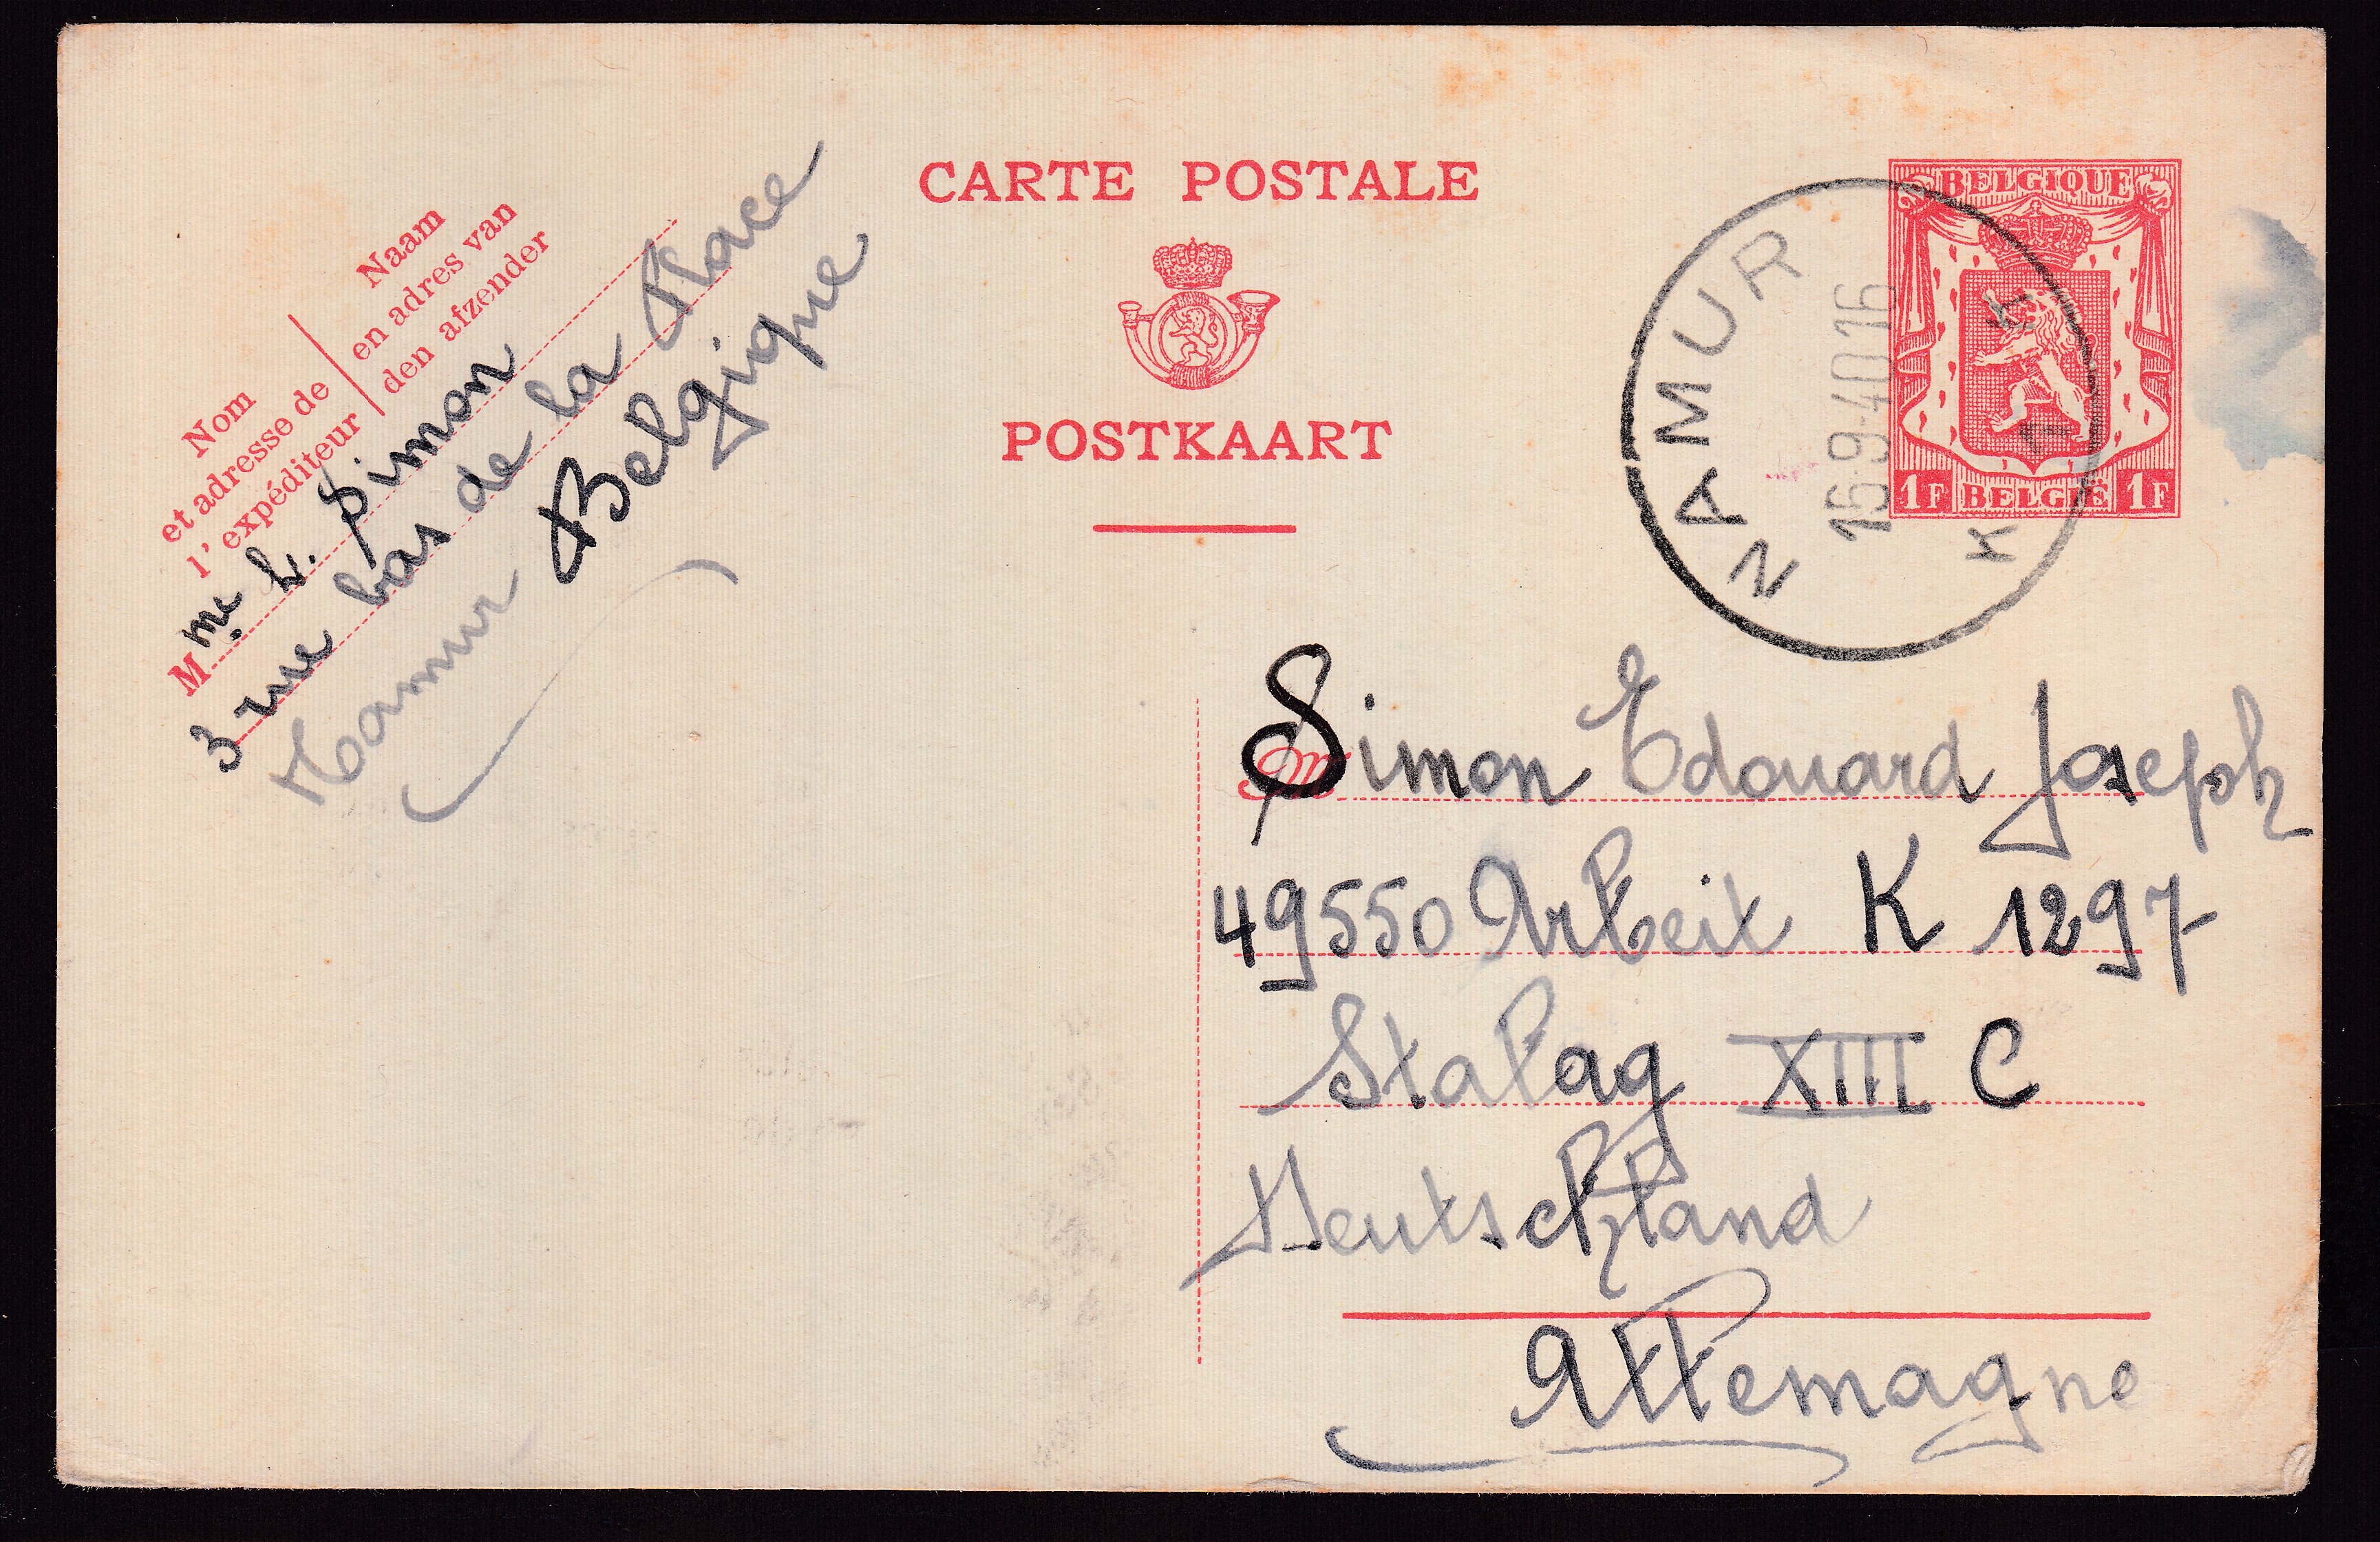 CARTE POSTALE
POSTKAART
Nom
et adresse de
l'expéditeur
Naam
en adres van
den afzender
Mme L. Simon
3 rue bas de la Place
Namur Belgique
BELGIQUE
1F BELGIE 1F
NAMUR
16-9-40 16
K K
Simon Edouard Joseph
49550 Arbeit K 1297
Stalag XIII C
Deutschland
Allemagne